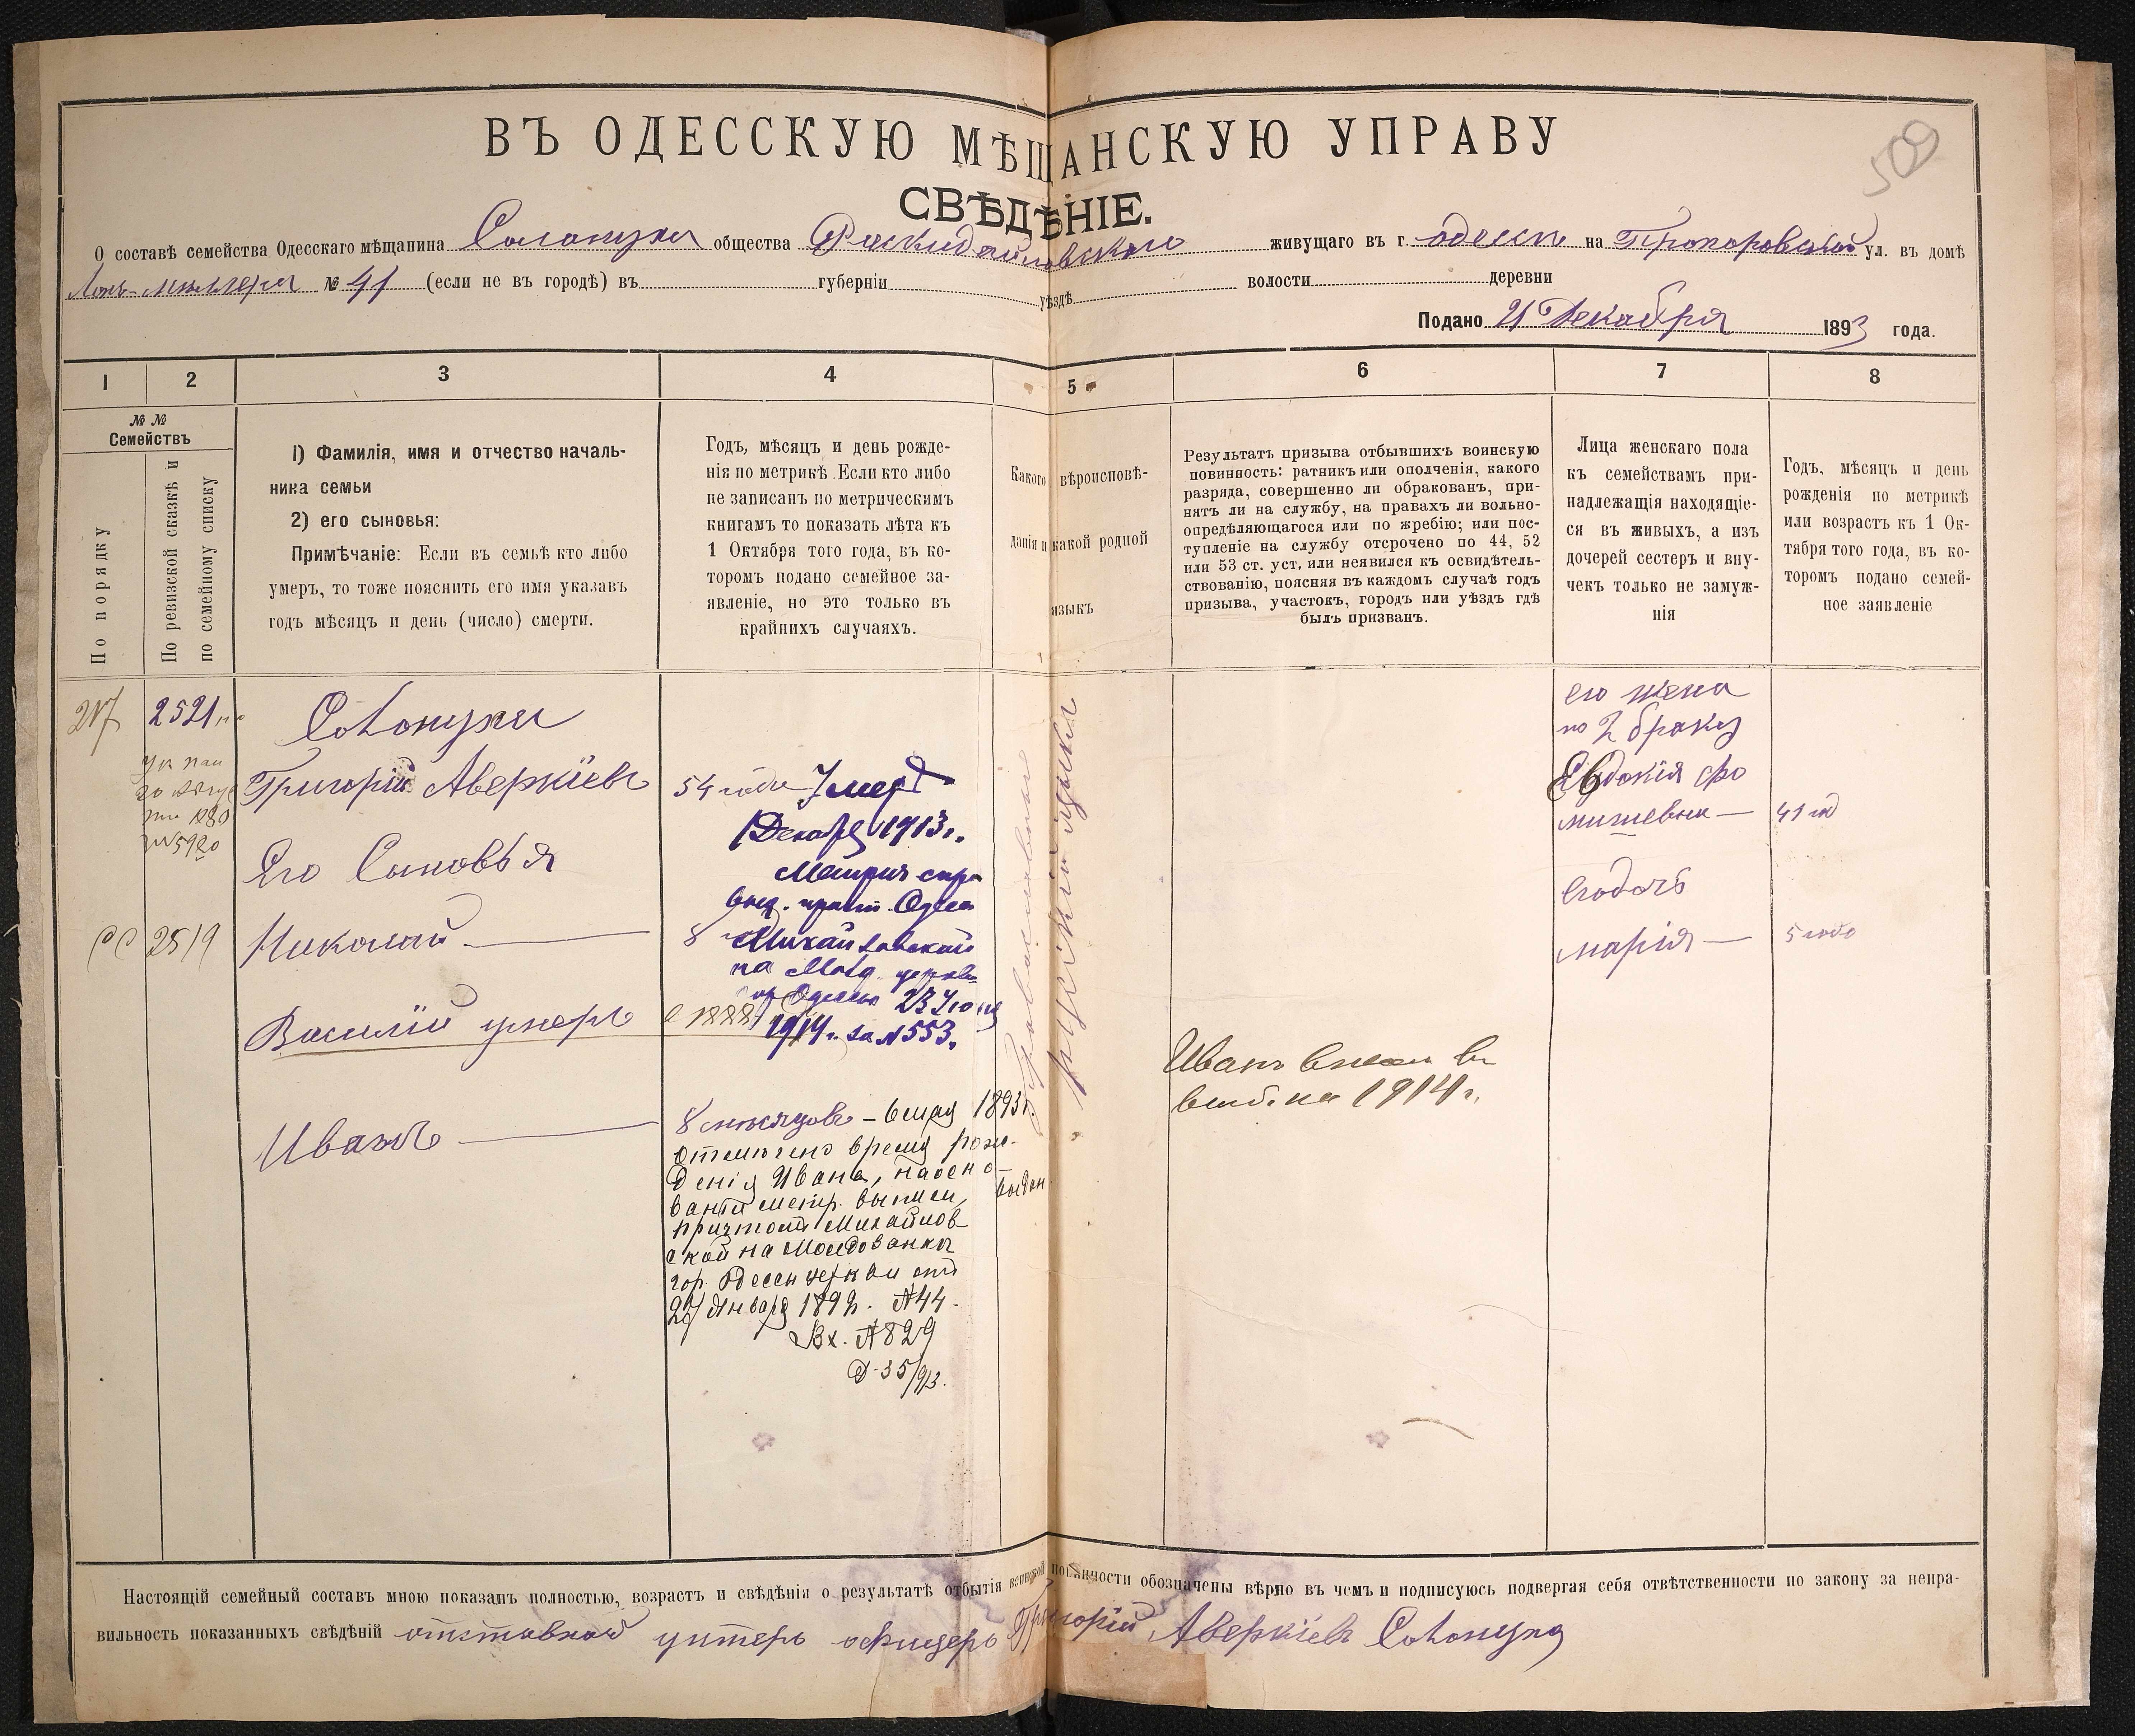 509
ВЪ ОДЕССКУЮ МѢЩАНСКУЮ УПРАВУ
СВѢДѢНІЕ.
О составѣ семейства Одесскаго мѣщанина Солопуха общества живущаго въ г. одессе на Прохоровской ул. въ домѣ
№ 41 (если не въ городѣ) въ губерніи уѣздѣ волости деревни
Подано 21 Декабря 1893 года.
1 2 3 4 5 6 7 8
№№
Семействъ
По порядку
По ревизской сказкѣ и
по семейному списку
1) Фамилія, имя и отчество началь-
ника семьи
2) его сыновья:
Примѣчаніе: Если въ семьѣ кто либо
умеръ, то тоже пояснить его имя указавъ
годъ мѣсяцъ и день (число) смерти.
Годъ, мѣсяцъ и день рожде-
нія по метрикѣ. Если кто либо
не записанъ по метрическимъ
книгамъ то показать лѣта къ
1 Октября того года, въ ко-
торомъ подано семейное за-
явленіе, но это только въ
крайнихъ случаяхъ.
Какого вѣроисповѣ-
данія и какой родной
языкъ
Результатъ призыва отбывшихъ воинскую
повинность: ратникъ или ополченія, какого
разряда, совершенно ли обракованъ, при-
нятъ ли на службу, на правахъ ли вольно-
опредѣляющагося или по жребію; или пос-
тупленіе на службу отсрочено по 44, 52
или 53 ст. уст. или неявился къ освидѣтель-
ствованію, поясняя въ каждомъ случаѣ годъ
призыва, участокъ, городъ или уѣздъ гдѣ
былъ призванъ.
Лица женскаго пола
къ семействамъ при-
надлежащія находящіе-
ся въ живыхъ, а изъ
дочерей сестеръ и вну-
чекъ только не замуж-
нія
Годъ, мѣсяцъ и день
рожденія по метрикѣ
или возрастъ къ 1 Ок-
тября того года, въ ко-
торомъ подано семей-
ное заявленіе
217 2521
Солопуха
Григорій Аверкіевъ
1880
№ 5920
Его Сыновья
2519 Николай
Василій умеръ
Иванъ
54 года Умеръ
1 Декабря 1913 г.
Метрич. спр.
выд. причт. Одесс.
8 Михайловской
на Молд. церкви
гор. Одессы 23 Іюня
1914 г. за № 553.
в 1888
8 месяцовъ – 6 мая 1893 г.
отмечено время рож-
денія Ивана, на осно-
ваніи метр. выписи, выдан.
причтомъ Михайлов-
ской на Молдованкѣ
гор. Одессы церкви отъ
Января № 44.
Вх. № 829
Д. 35/913.
Православнаго
русскій языкъ
Иванъ внесенъ въ
1914 г.
его жена
по 2 браку
Евдокія Фо
мишевна – 41 год
его дочь
марія – 5 годо
Настоящій семейный составъ мною показанъ полностью, возрастъ и свѣдѣнія о результатѣ отбытія воинской повинности обозначены вѣрно въ чемъ и подписуюсь подвергая себя отвѣтственности по закону за непра-
вильность показанныхъ свѣдѣній отставной унтеръ офицеръ Григорій Аверкіевъ Солопуха